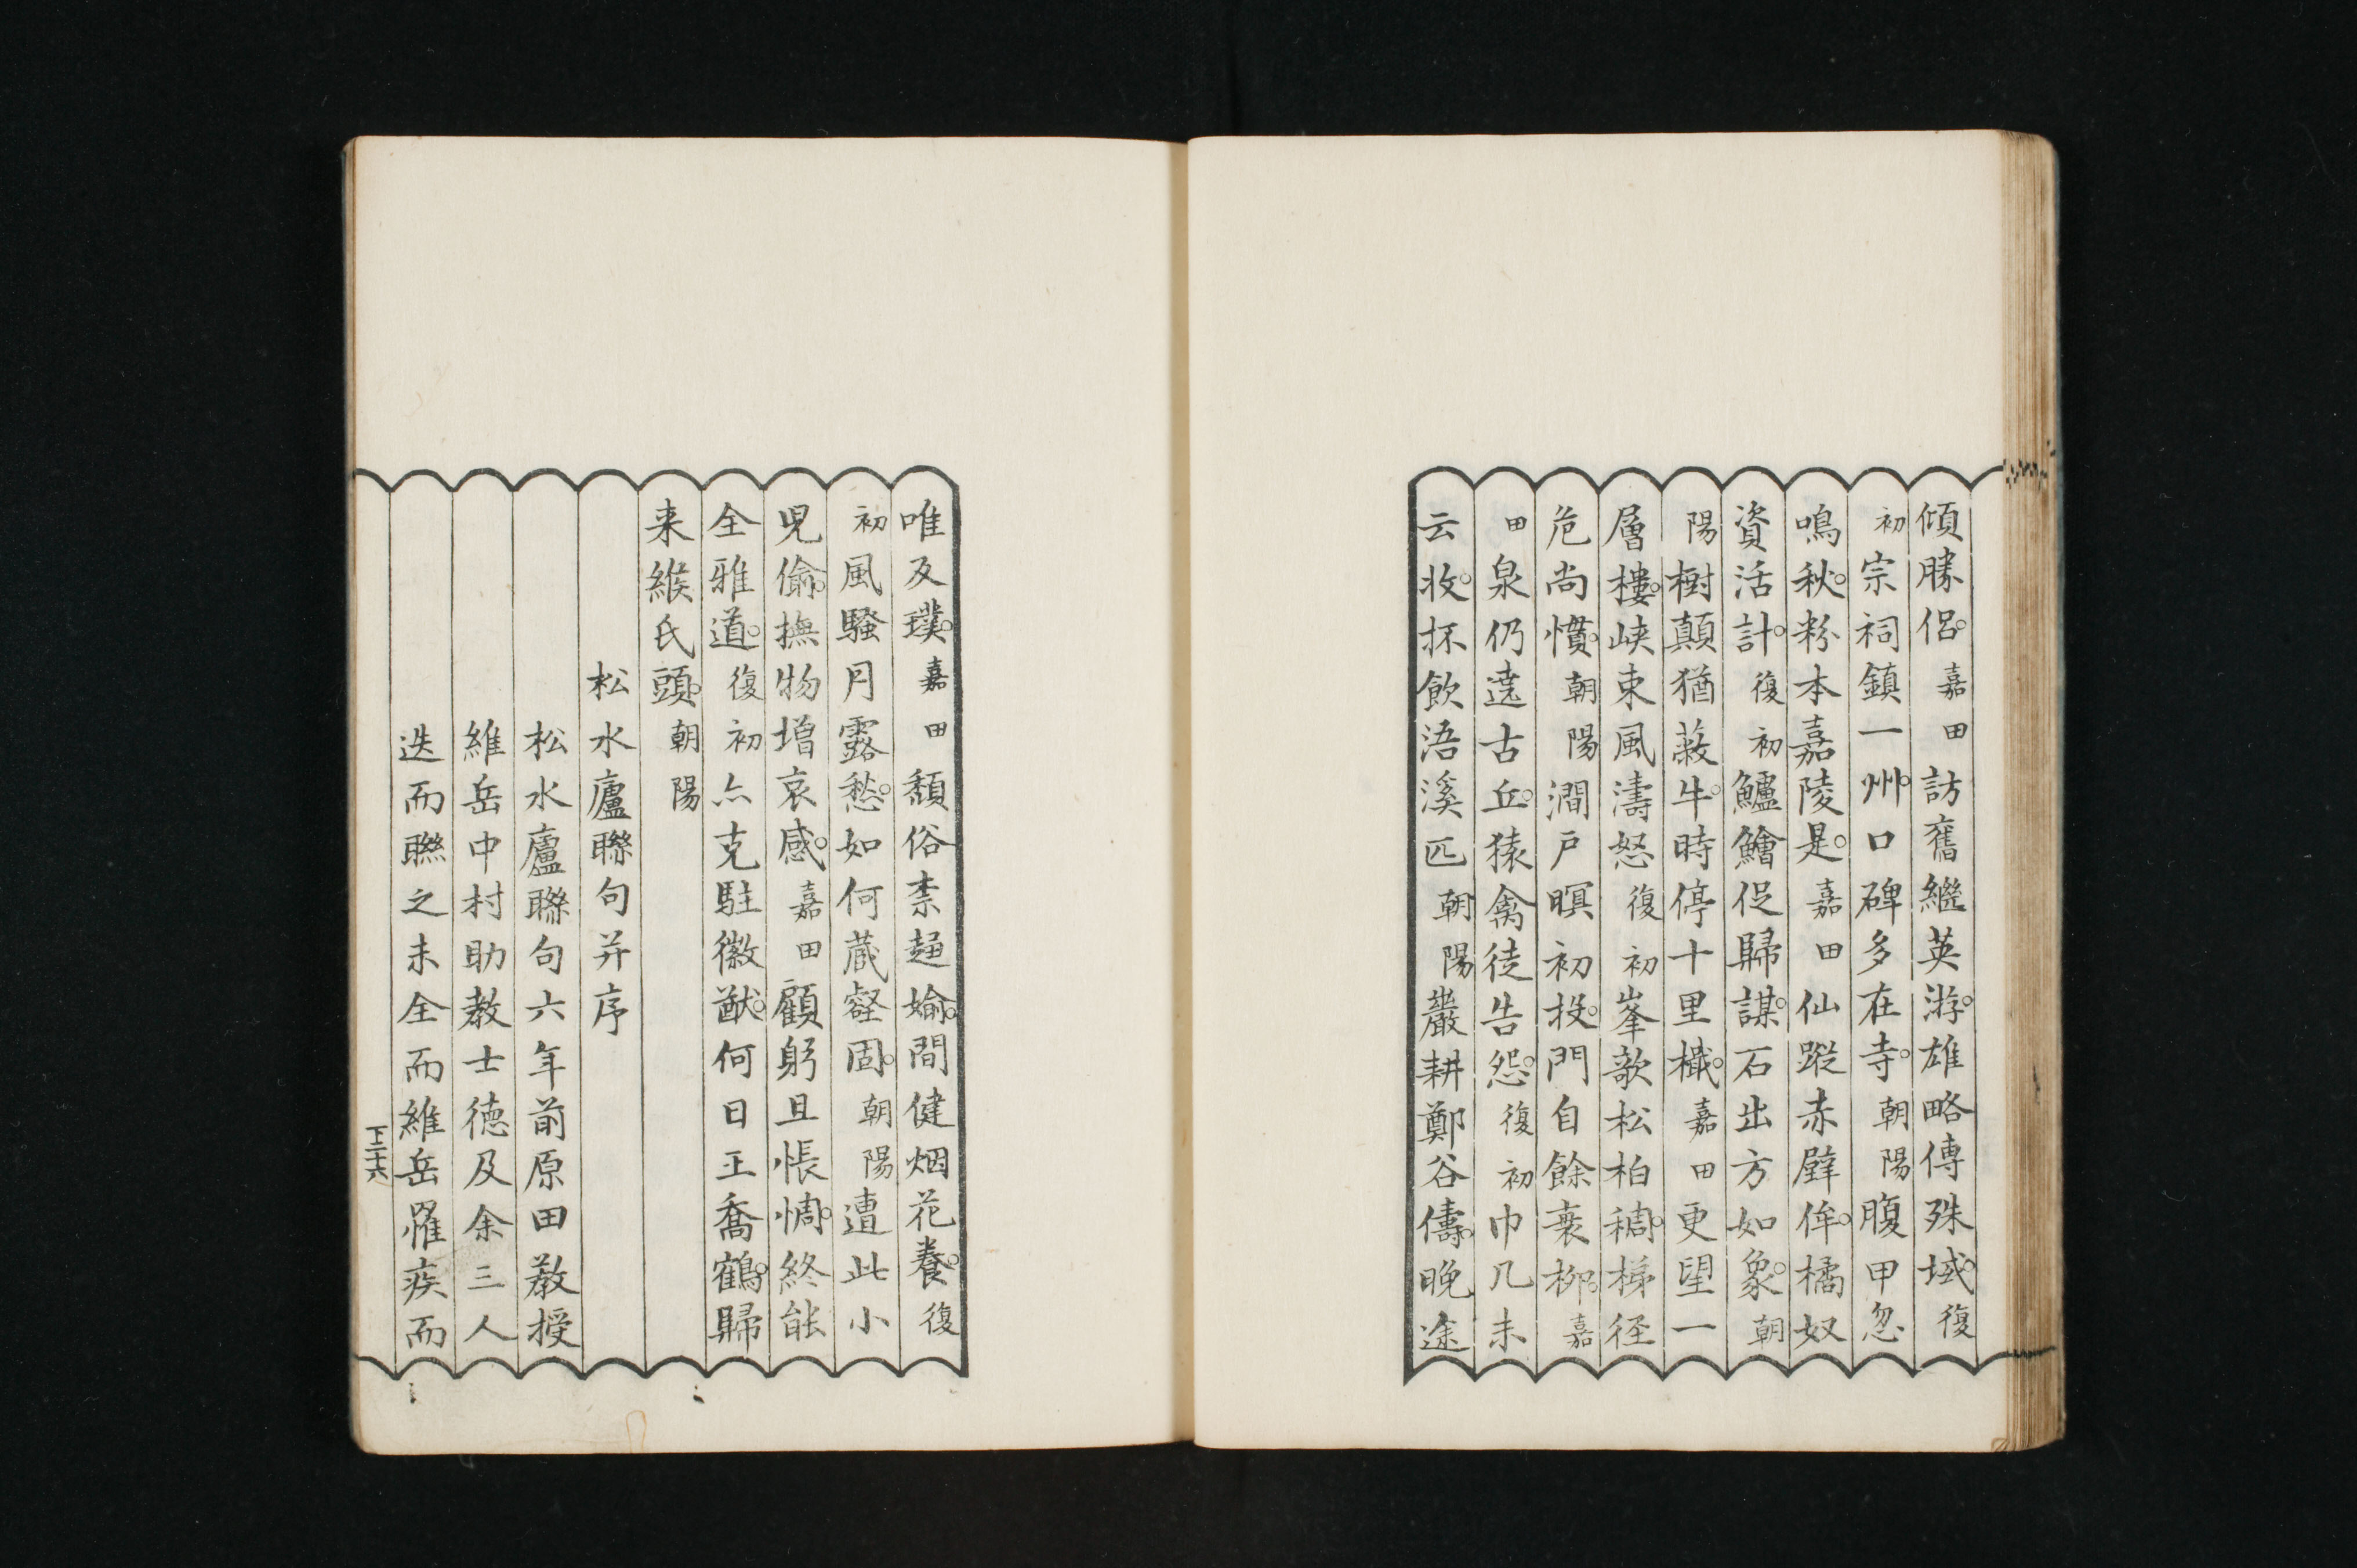 傾勝侶。嘉田訪舊繼英游。雄略傳殊域。復
初宗祠鎮一州。口碑多在寺。朝陽腹甲忽
鳴秋。粉本嘉陵是。嘉田仙蹤赤壁侔。橘奴
資活計。復初鱸鱠促歸謀。石出方如象。朝
陽樹顛猶蔽牛。時停十里檥。嘉田更望一
層樓。峡束風濤怒復初峯歌松柏稠。梯径
危尚慣。朝陽澗戸暝初投。門自餘衰柳。嘉
田泉仍遶古丘。猿禽徒告怨。復初巾几未
云收。抔飲浯溪匹朝陽巖耕鄭谷儔。晩途
唯及璞。嘉田頽俗柰超婾。間健烟花養。復
初風騒月露愁。如何蔵壑固。朝陽遭此小
児偸。撫物増哀感。嘉田顧躬且悵惆。終能
全雅道。復初亦克駐徽猷。何日王喬鶴。歸
来緱氏頭。朝陽
松水廬聯句并序
松水廬聯句六年前原田教授
維岳中村助教士徳及余三人
迭而聯之未全而維岳罹疾而
下二十六